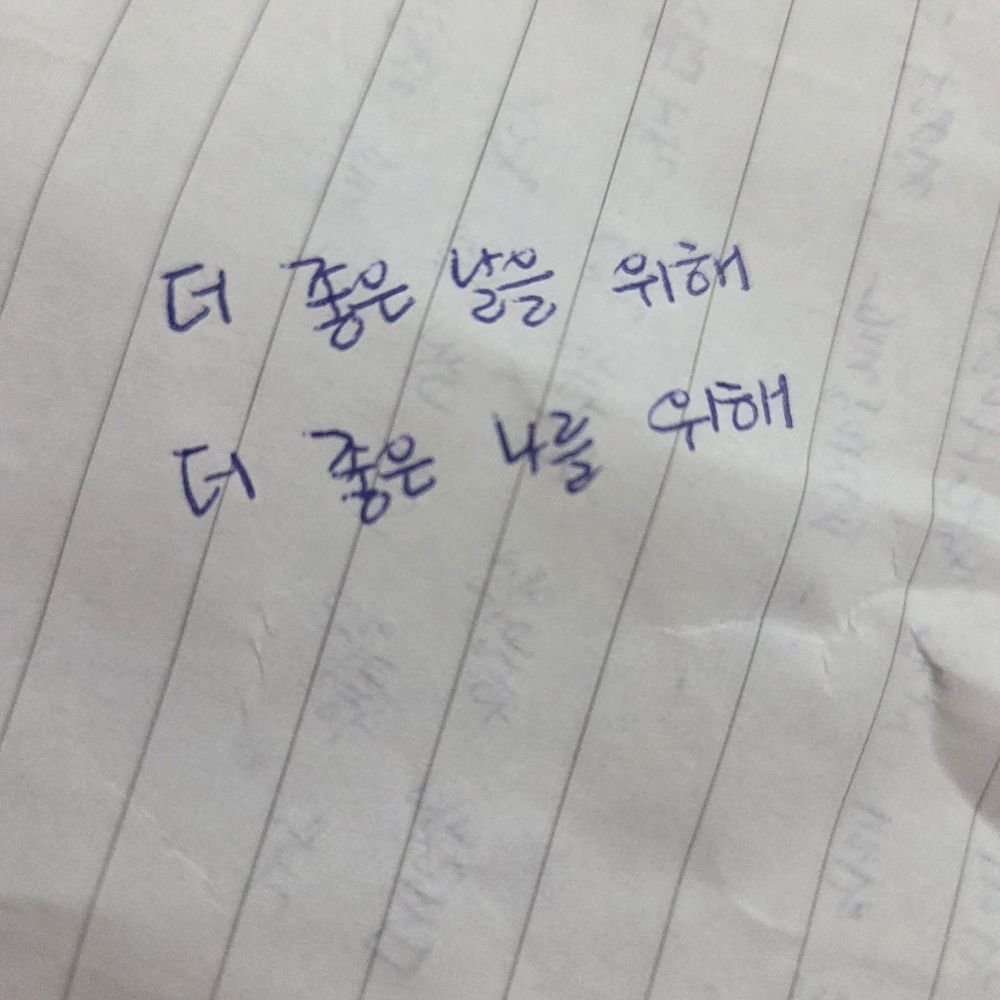 더 좋은 날을 위해
더 좋은 나를 위해